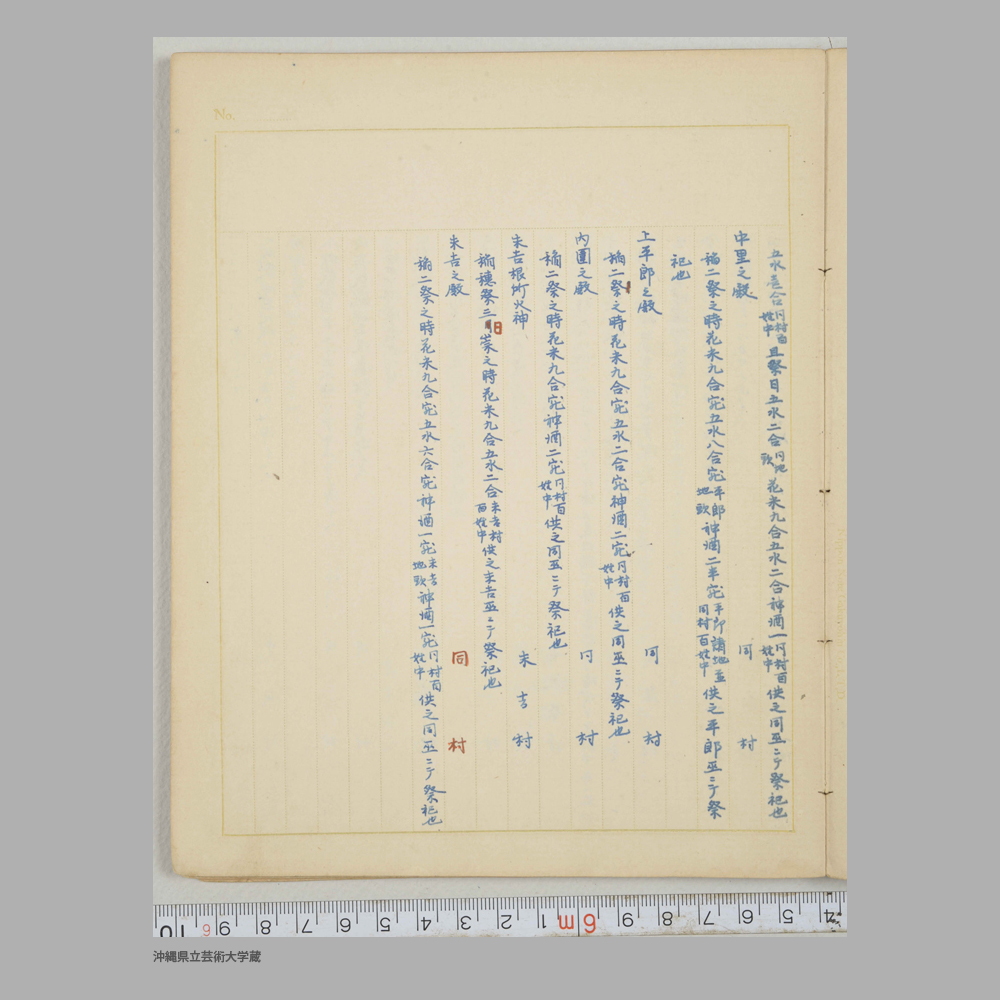 五水壱合同村百姓中且祭日五水二合同地頭花米九合五水二合神酒一同村百姓中供之同巫ニテ祭祀也
中里之殿 同村
稲二祭之時花米九合宛五水八合宛平郎地頭神酒二半宛平郎諸地並同村百姓中供之平郎巫ニテ祭
祀也
上平郎之殿 同村
稲二祭之時花米九合宛五水二合宛神酒二宛同村百姓中供之同巫ニテ祭祀也
内圍之殿 同村
稲二祭之時花米九合宛神酒二宛同村百姓中供之同巫ニテ祭祀也
末吉根所火神 末吉村
稲穂祭三日崇之時花米九合五水二合末吉村百姓中供之末吉巫ニテ祭祀也
末吉之殿 同村
稲二祭之時花米九合宛五水六合宛神酒一宛末吉地頭神酒一宛同村百姓中供之同巫ニテ祭祀也
No.
沖縄県立芸術大学蔵